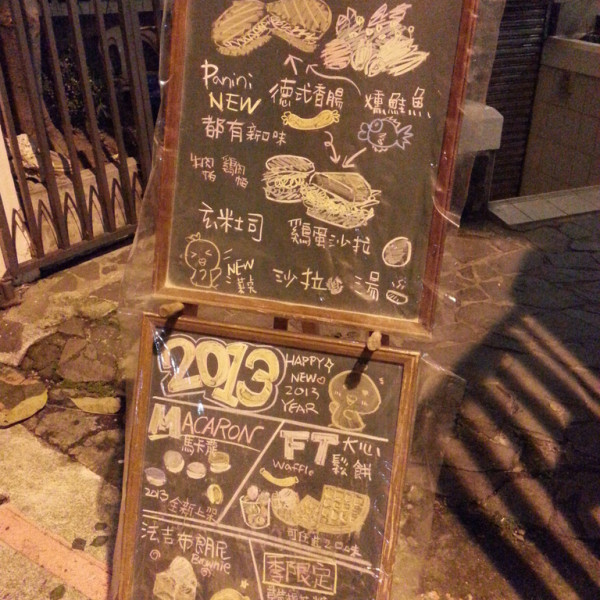 Panini
NEW
德式香腸
燻鮭魚
都有新口味
牛肉
雞肉
玄米吐司
雞蛋沙拉
NEW
沙拉
湯
2013
HAPPY
NEW
2013
YEAR
MACARON
馬卡龍
2013
全新上架
FT 大心
Waffle
鬆餅
法吉布朗尼
Brownie
季限定